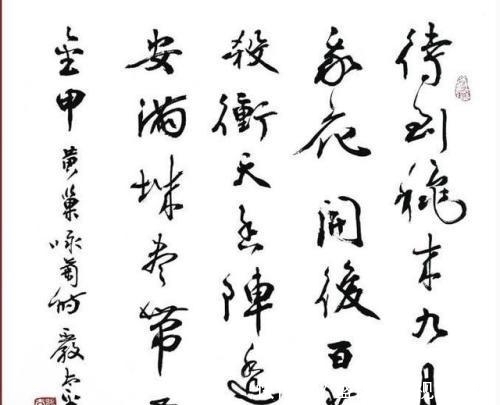 待到穐来九月
我花開後百
殺衝天香陣透
安滿城尽帶
金甲 黄巢咏菊詩 嚴